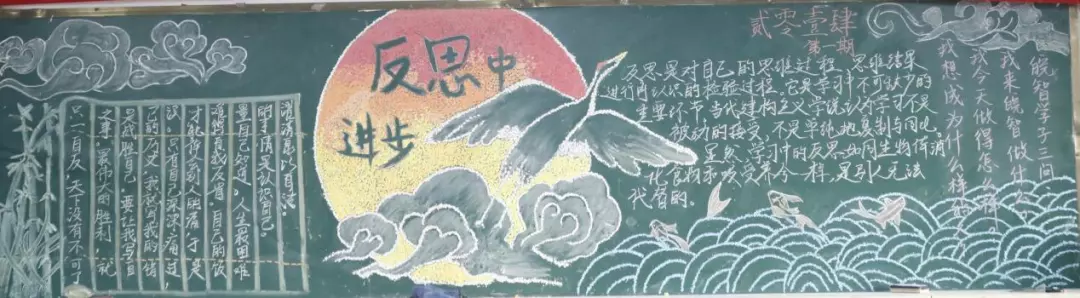 反思中
进步
贰零壹肆
第一期
反思是对自己的思维过程、思维结果
进行再认识的检验过程。它是学习中不可缺少的
重要环节。当代建构主义学说认为学习不是
被动的接受，不是单纯地复制与同化，
显然，学习中的反思如同生物体消
化食物和吸收养分一样，是别人无法
代替的。
学子三问
我来 智做什么
我今天做得怎么样
我想成为什么样的人
事情是认识自己
量自己知道。人生最困难
反省自己的
才能 于是
只有自己深深
己的历史，我就写我的
是战胜自己 要让我写自
之事。最伟大的胜利就
只一自反，天下没有不可了